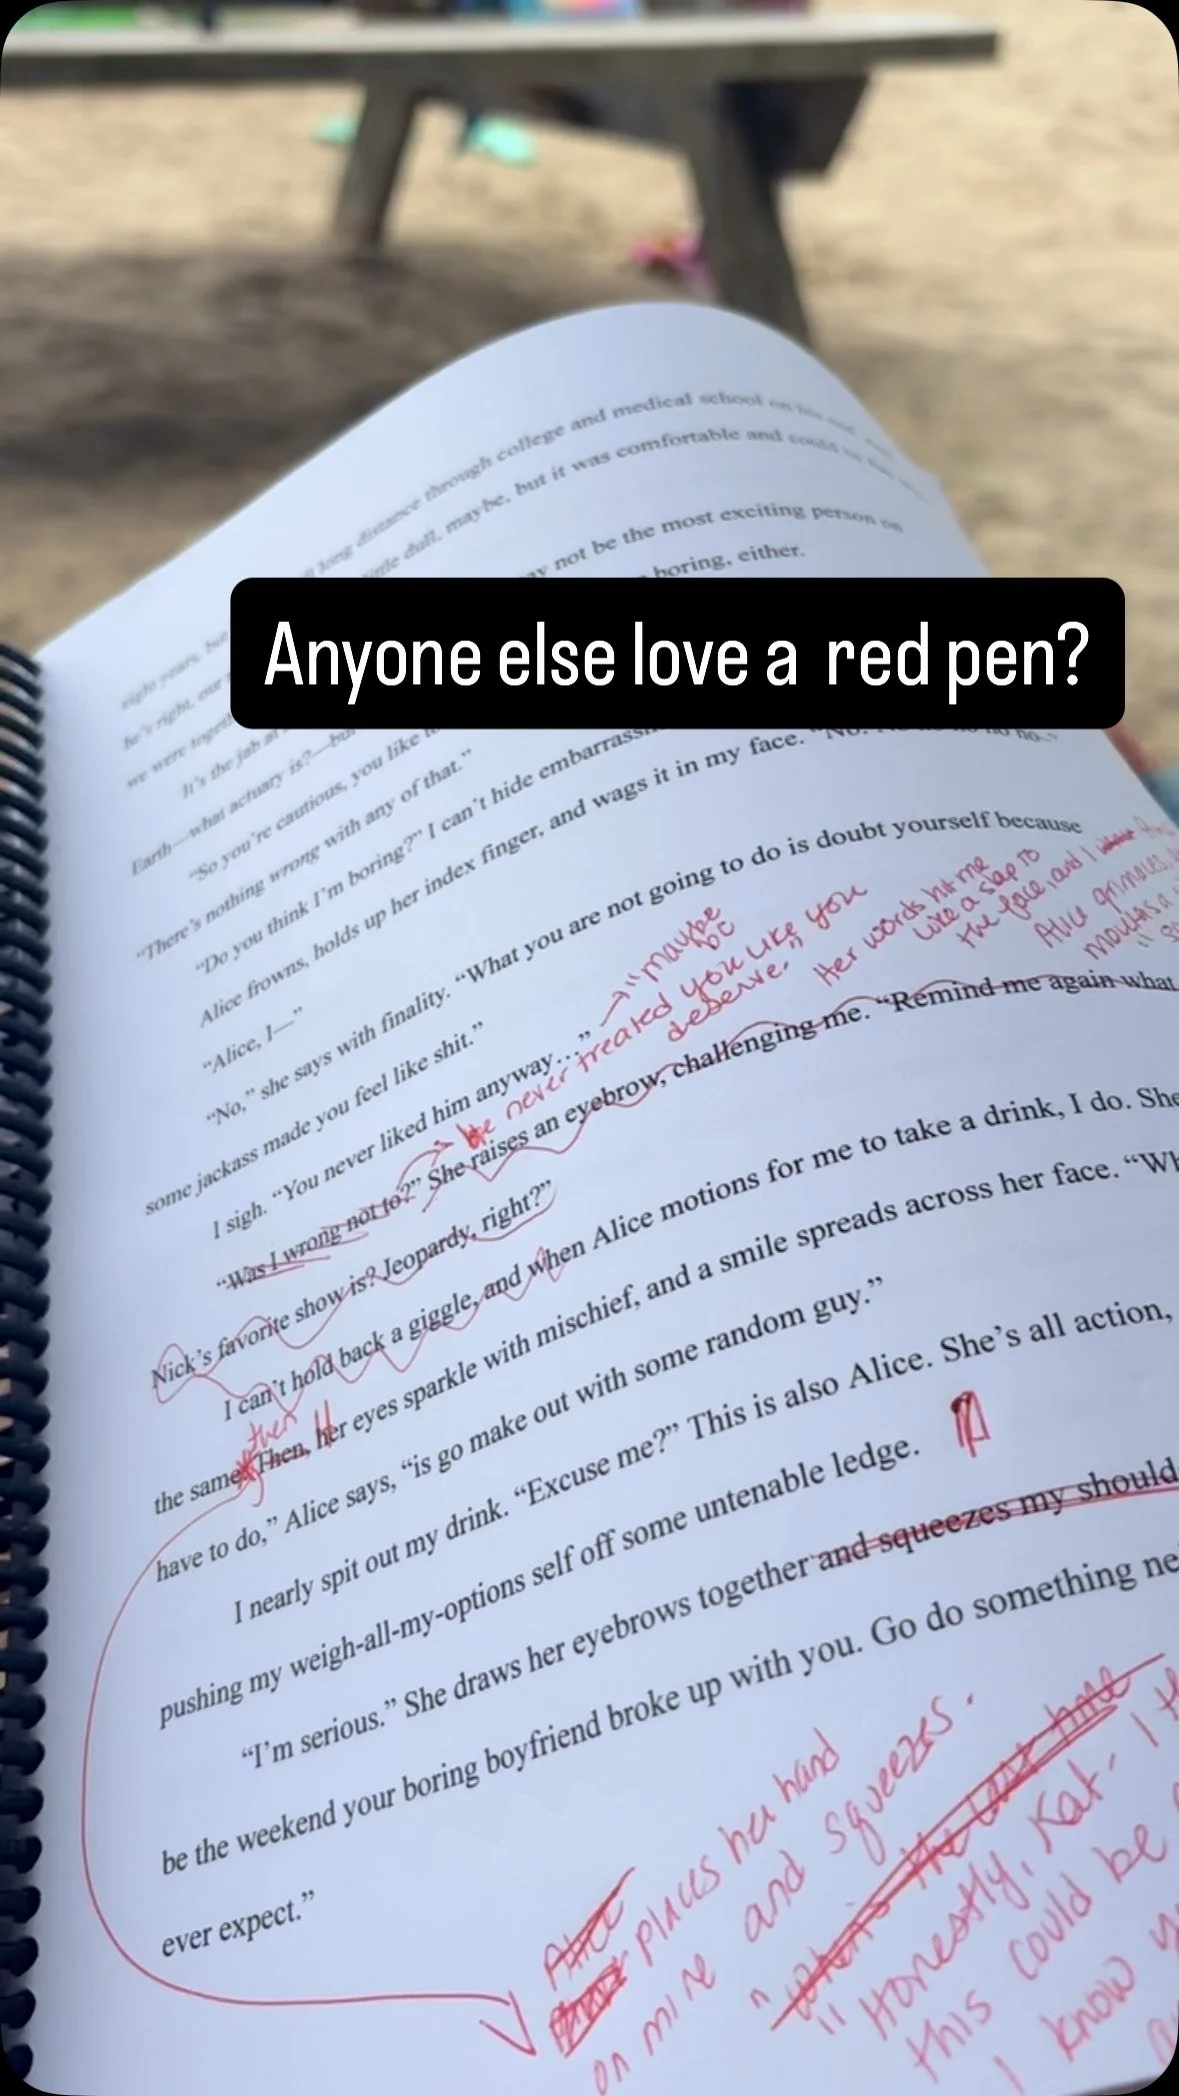 long distance through college and medical school on
little dull, maybe, but it was comfortable and could
not be the most exciting person on
boring, either.
Anyone else love a red pen?
eight years, but
he's right, our
we were together
It's the jab at
Earth—what actuary is?—but
"So you're cautious, you like to
"There's nothing wrong with any of that."
"Do you think I'm boring?" I can't hide
Alice frowns, holds up her index finger, and wags it in my face. "No.
"Alice, I—"
"No," she says with finality. "What you are not going to do is doubt yourself because
some jackass made you feel like shit."
I sigh. "You never liked him anyway…"
"maybe bc
he never treated you like you
deserve."
Her words hit me
like a slap to
the face, and I
Alice grimaces,
"Was I wrong not to?" She raises an eyebrow, challenging me. "Remind me again what
Nick's favorite show is? Jeopardy, right?"
I can't hold back a giggle, and when Alice motions for me to take a drink, I do. She
then H
the same. Then, her eyes sparkle with mischief, and a smile spreads across her face. "Wh
have to do," Alice says, "is go make out with some random guy."
I nearly spit out my drink. "Excuse me?" This is also Alice. She's all action,
pushing my weigh-all-my-options self off some untenable ledge.
"I'm serious." She draws her eyebrows together and squeezes my should
be the weekend your boring boyfriend broke up with you. Go do something ne
ever expect."
Alice
places her hand
on mine and squeezes.
the last time
"Honestly, Kat, I th
this could be
I know